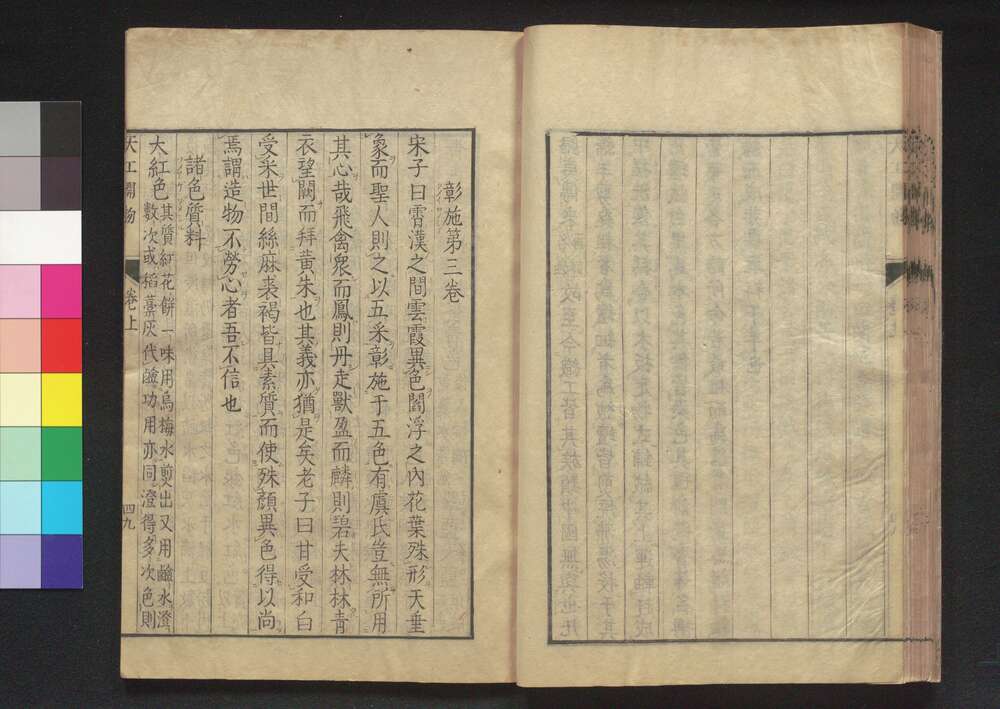 彰施第三卷
宋子曰霄漢之間雲霞異色閻浮之內花葉殊形天垂
象而聖人則之以五采彰施于五色有虞氏豈無所用
其心哉飛禽衆而鳳則丹走獸盈而麟則碧夫林林青
衣望闕而拜黃朱也其義亦猶是矣老子曰甘受和白
受采世間絲麻裘褐皆具素質而使殊顏異色得以尚
焉謂造物不勞心者吾不信也
諸色質料
大紅色其質紅花餅一味用烏梅水煎出又用鹼水澄
數次或稻藁灰代鹼功用亦同澄得多次色則
天工開物 卷上 四九